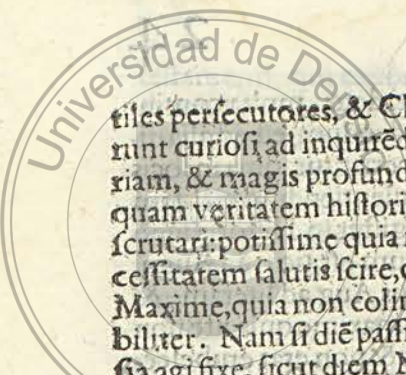 Universidad de De
tiles persecutores, & C
runt curiosi ad inquirēd
riam, & magis profund
quam veritatem histori
scrutari: potissime quia
cessitatem salutis scire,
Maxime, quia non colim
biliter. Nam si diē passi
sia agi fixe, sicut diem N